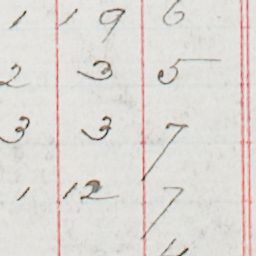 1 19 6
2 3 5
3 3 7
1 12 7